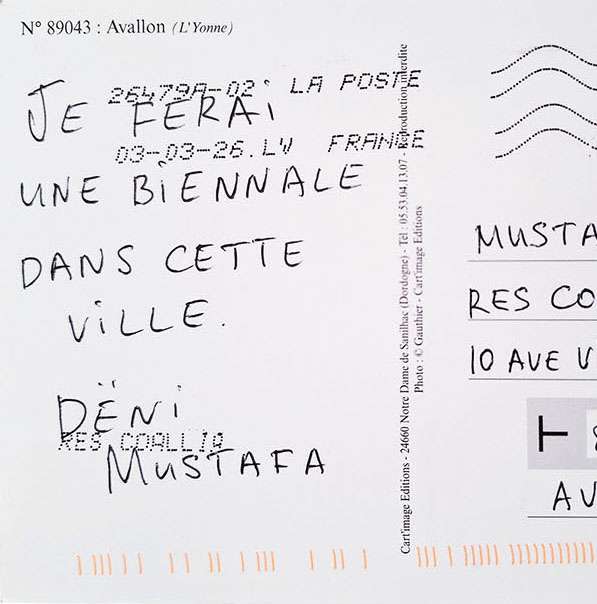 N° 89043 : Avallon (L'Yonne)
26479A-02 LA POSTE
03-03-26.LV FRANCE
JE FERAI
UNE BIENNALE
DANS CETTE
VILLE.
DËNI
RES COALLIA
MUSTAFA
Cart'image Editions - 24660 Notre Dame de Sanilhac (Dordogne) - Tél : 05.53.04.13.07 - Reproduction interdite
Photo : © Gauthier - Cart'image Editions
MUSTA
RES CO
10 AVE V
AV